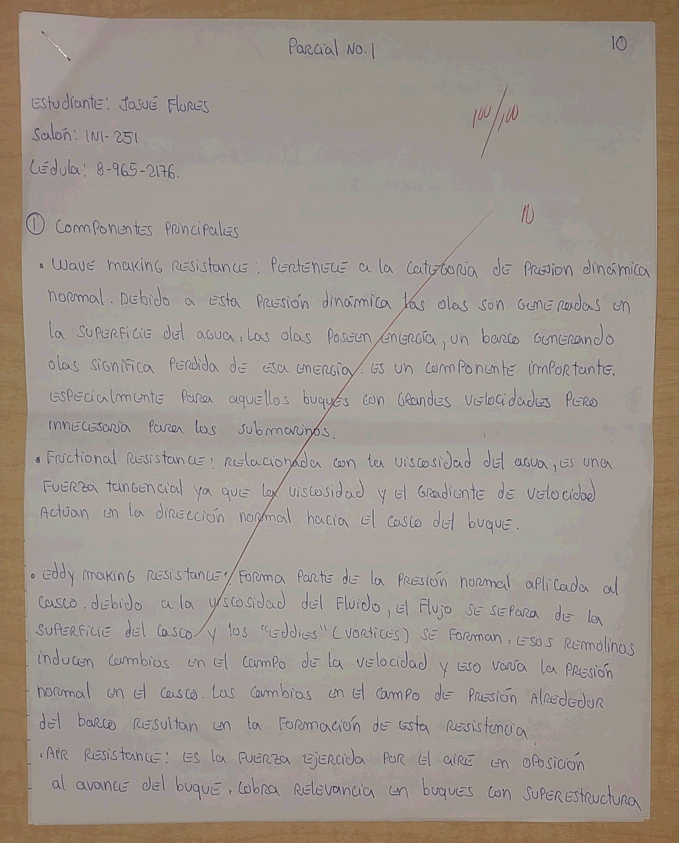 Parcial No. 1
10
Estudiante: Josué Flores
100/100
Salón: 1NI-251
Cédula: 8-965-2176.
10
① Componentes Principales
• Wave making Resistance: Pertenece a la categoria de Presion dinámica
normal. Debido a esta Presión dinámica las olas son Generadas en
la superficie del agua. Las olas poseen energía, un barco Generando
olas significa Perdida de esa energía. Es un componente importante.
Especialmente Para aquellos buques con Grandes velocidades Pero
innecesaria Para los submarinos.
• Frictional Resistance: Relacionada con la viscosidad del agua, es una
Fuerza tangencial ya que la viscosidad y el Gradiente de velocidad
Actúan en la dirección normal hacia el casco del buque.
• Eddy making Resistance: Forma Parte de la Presión normal aplicada al
casco. Debido a la viscosidad del Fluido, el Flujo se separa de la
superficie del casco y los "Eddies" (vortices) se forman. Esos Remolinos
inducen cambios en el campo de la velocidad y eso varía la Presión
normal en el casco. Los cambios en el campo de Presión Alrededor
del barco Resultan en la Formación de esta Resistencia.
• Air Resistance: Es la Fuerza Ejercida Por el aire en oposición
al avance del buque. Cobra Relevancia en buques con superestructura